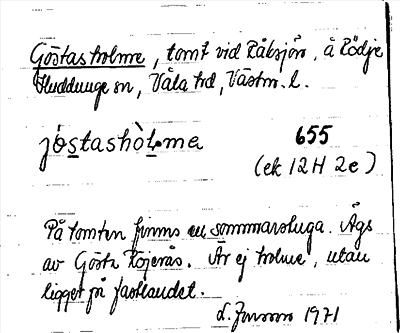 Göstasholme, tomt vid Råksjön, å Rödje
Huddunge sn, Våla hd, Västm. l.
jöstashòlme 655
(ek 12H 2e)
På tomten finns en sommarstuga. Ägs
av Gösta Röjerås. Är ej holme, utan
ligger på fastlandet.
L. Jonsson 1971